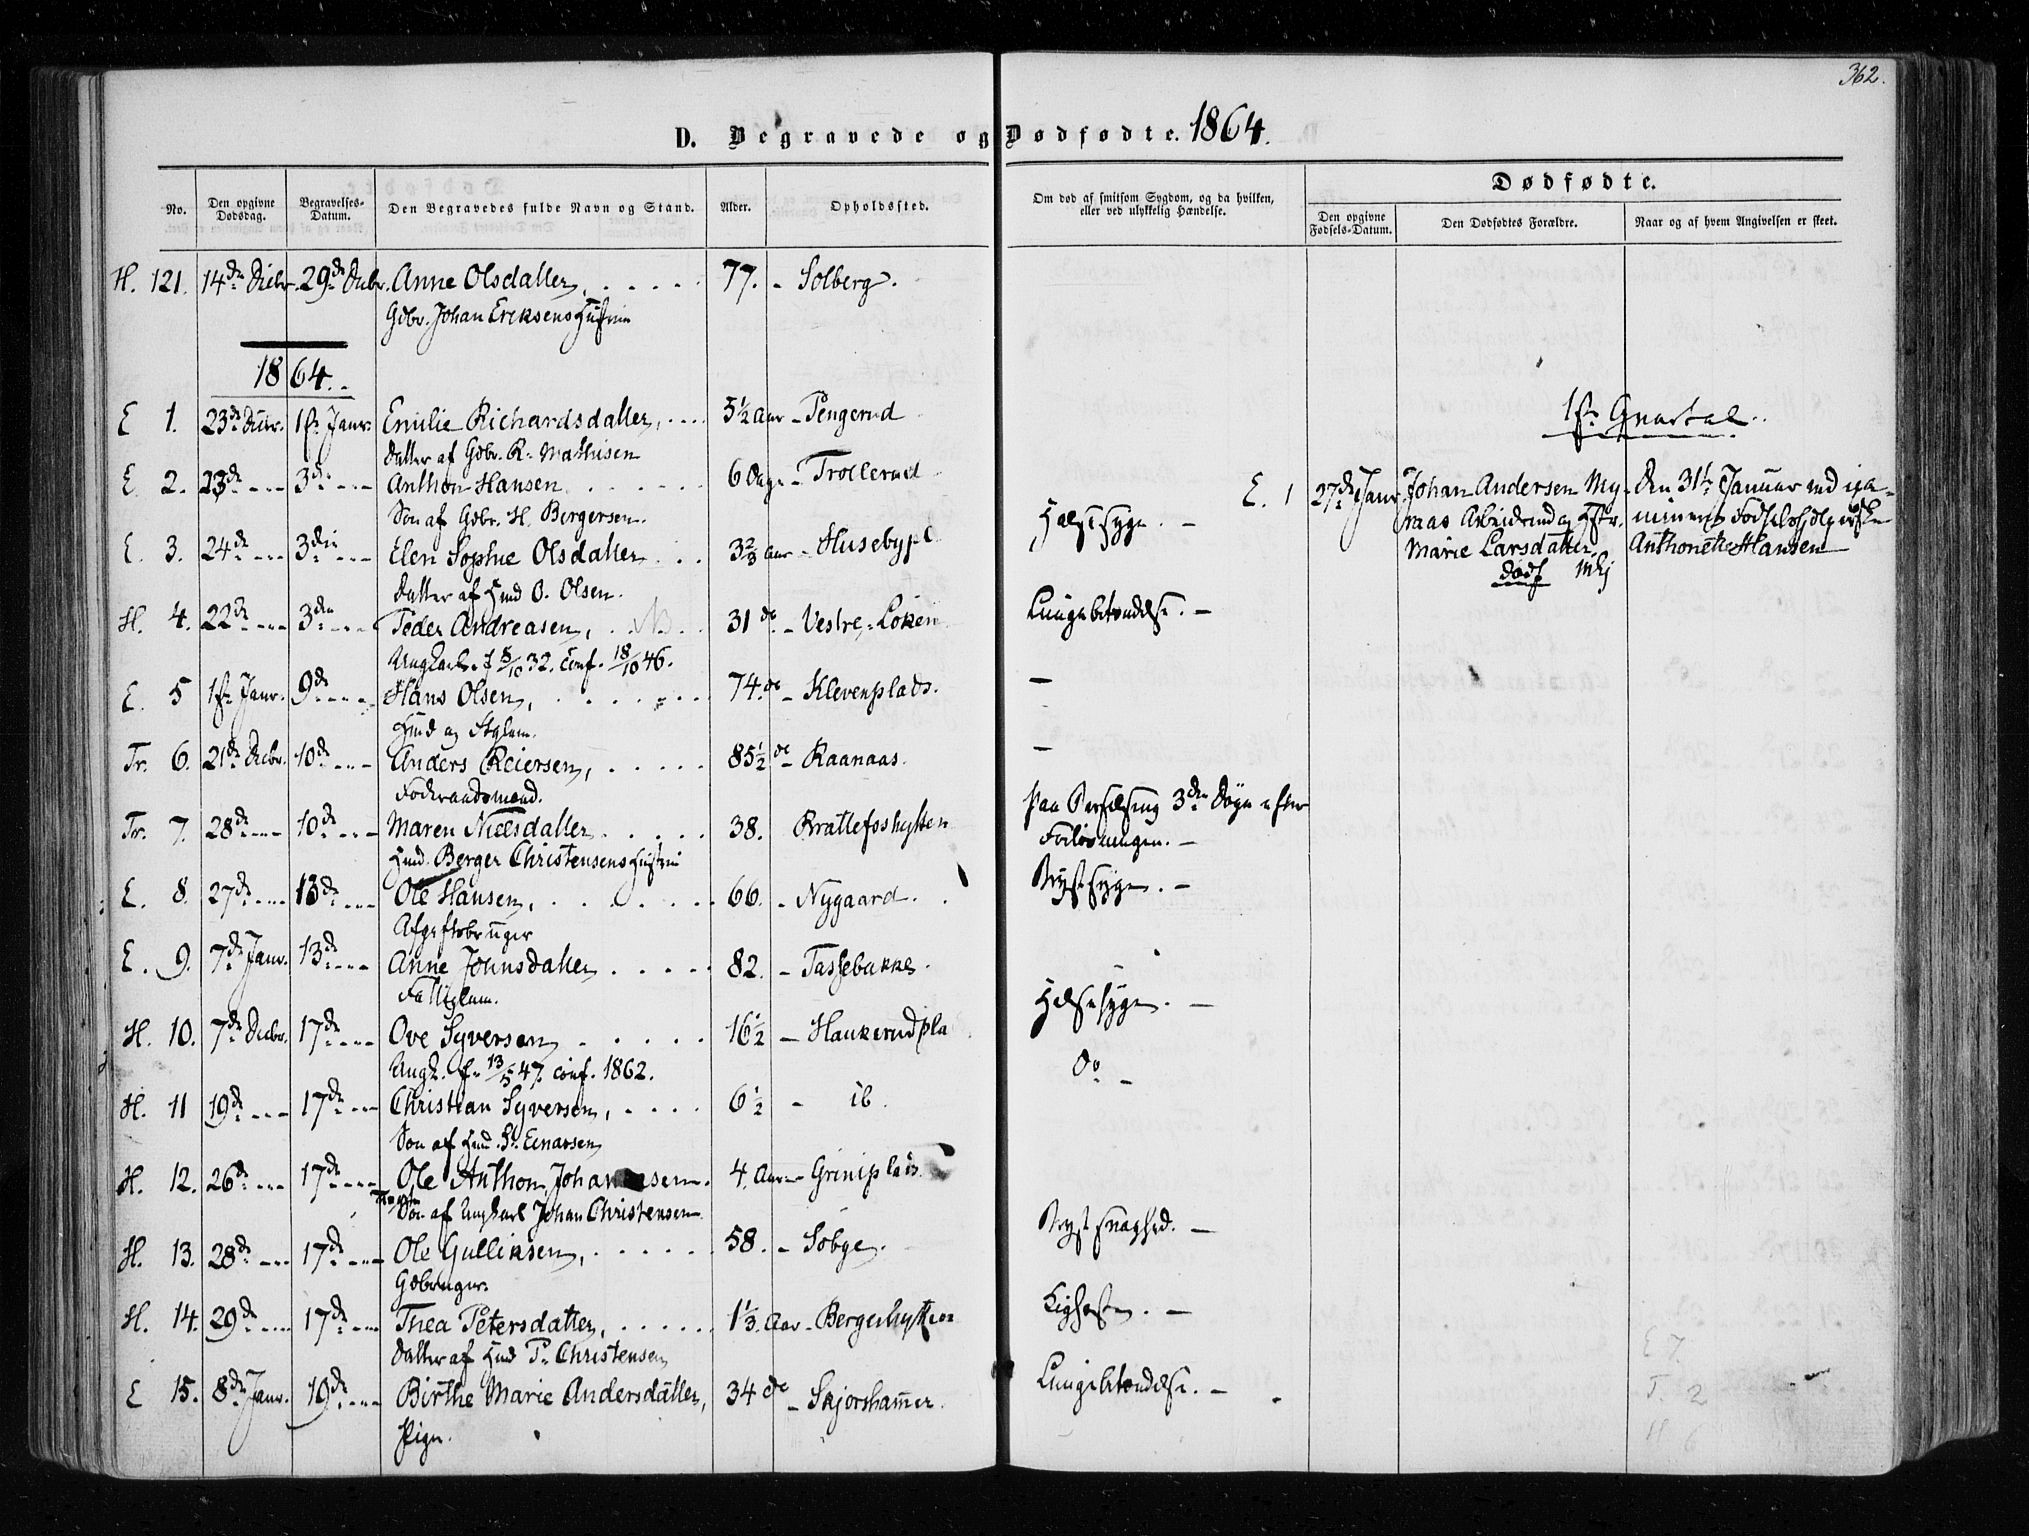 362.
D. Begravede og Dødfødte. 1864.
No. Den opgivne Dødsdag. Begravelses-Datum. Den Begravedes fulde Navn og Stand. Alder. Opholdssted. Om død af smitsom Sygdom, og da hvilken, eller ved ulykkelig Hændelse.
Dødfødte.
Den opgivne Fødsels-Datum. Den Dødfødtes Forældre. Naar og af hvem Angivelsen er skeet.
H. 121. 14de Decbr. 29de Decbr. Anne Olsdatter, 77. - Solberg.
Gdbr. Johan Ericksens Hustru
1864.
E 1. 23de Decbr. 1ste Janr. Emilie Richardsdatter, 5½ Aar - Pengerud
Datter af Gdbr. R. Mathisen
E. 2. 23de 3die Anthon Hansen 6 Dage - Trollerud
Søn af Gdbr. H. Bergersen.
E. 3. 24de 3die Elen Sophie Olsdatter 3⅔ Aar - Husebypl. Halssyge. -
Datter af Hmd O. Olsen.
H. 4. 22de 3die Peder Andreasen, 31 do - Vestre-Löken Lungebetændelse. -
Ungkarl. f 5/10 32. conf. 18/10 46.
E. 5 1ste Janr. 9de Hans Olsen, 74. do - Klevenplads. -
Hmd og Ftglem.
Tr. 6. 21de Decbr. 10de Anders Reiersen, 85½ do - Raanaas. -
Föderaadsmand.
Tr. 7. 28de 10de Maren Nielsdatter 38. Brattefoshytten paa Barselseng 3die Døgn efter
Forløsningen. -
Hmd. Berger Christensens Hustru
E. 8. 27de 13de Ole Hansen, 66. - Nygaard. Brystsyge. -
Afgiftsbruger
E. 9. 7de Janr. 13de Anne Johnsdatter 82. - Tassebakke.
Fattiglem.
H. 10. 7de Decbr. 17de Ove Syversen 16½ - Haukerudpla Halssyge. -
Ungk. f. 13/5 47. conf. 1862.
H. 11 19de 17de Christian Syversen, 6½ - ib. Do -
Søn af Hmd. S. Einarsen
H. 12. 26de 17de Ole Anthon Johannesen. 4. Aar - Griniplads.
Søn af Ungkarl Johan Christensen
H. 13. 28de 17de Ole Gulliksen, 58. - Sobye. Brystsvaghed. -
Gdbruger.
H. 14. 29de 17de Thea Petersdatter, 1⅓. Aar - Bergerhytten Kighoste. -
Datter af Hmd P. Christensen
E 15. 8de Janr. 19de Birthe Marie Andersdatter, 34 do - Skjorshammer. Lungebetændelse. -
Pige.
1ste Qvartal.
E. 1 27de Janr. Johan Andersen My- Den 31te Januar ved exa-
raas Arbeidsmd og Hstr. mineret Fødselshjelperske
Marie Larsdatter, Anthonette Hansen
dødf
E 7.
T. 2
H 6